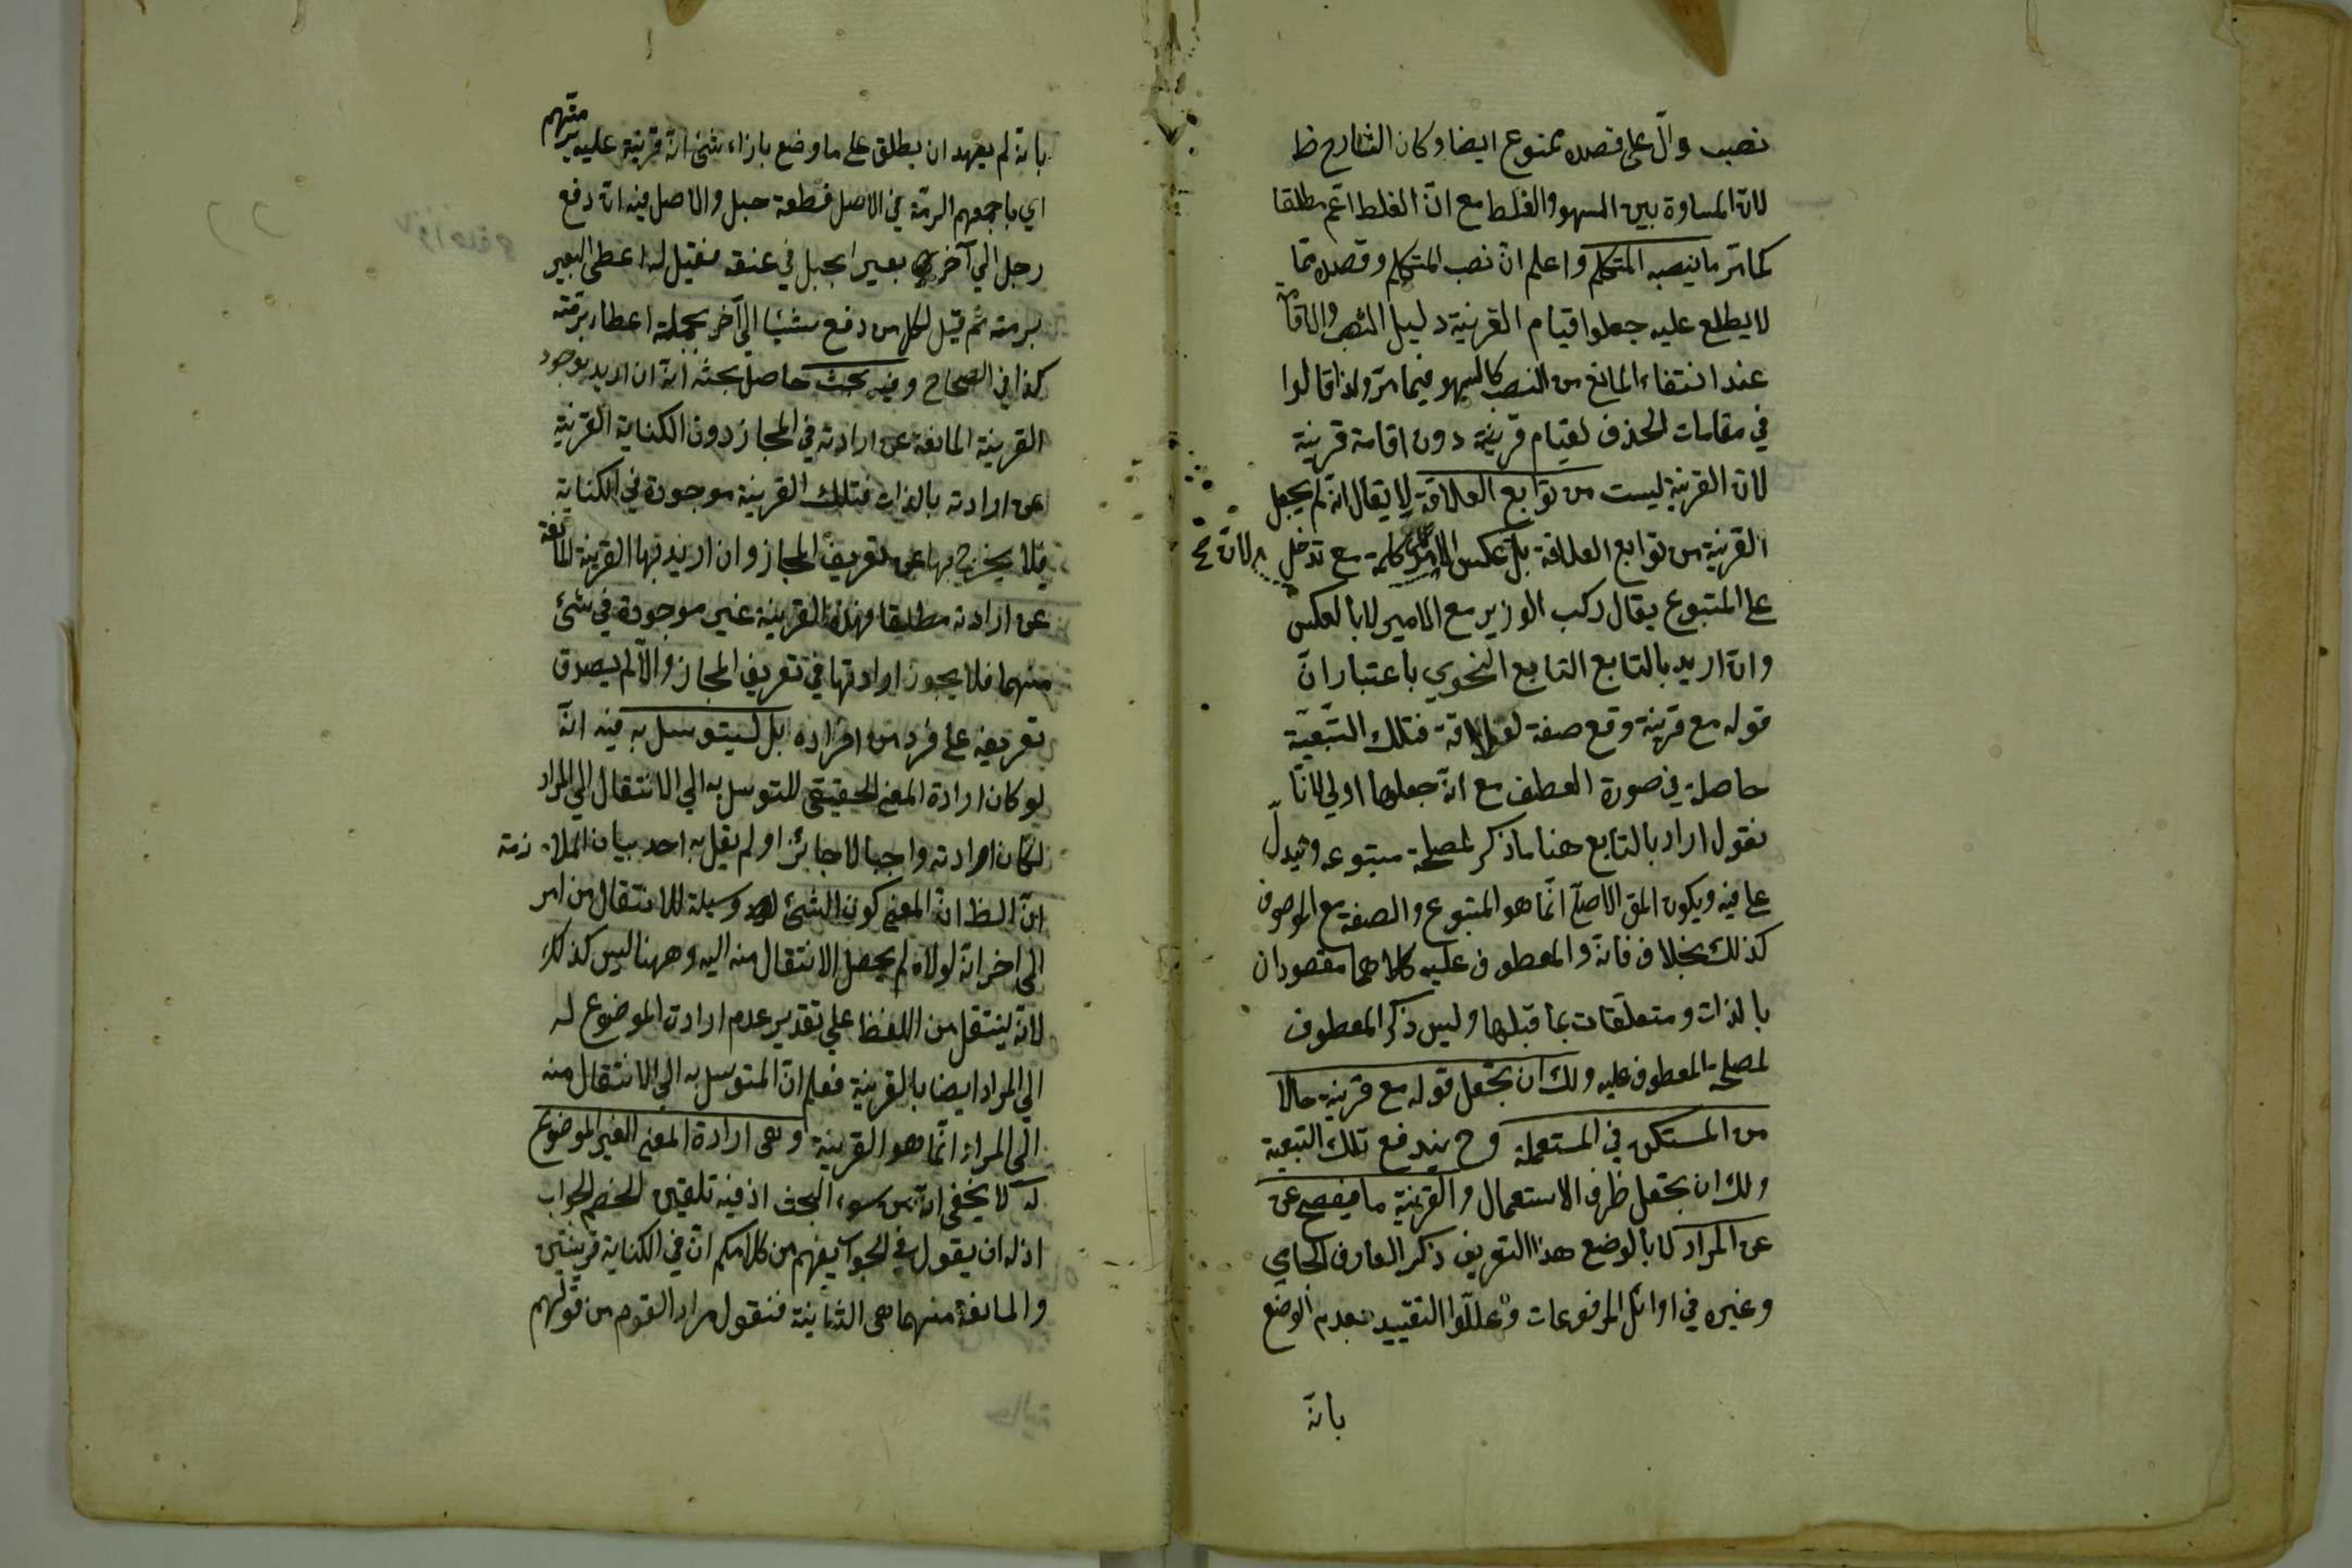 نصب دالّ على قصده ممنوع ايضا وكان الشارح ظ
لان المساوة بين السهو والغلط مع انّ الغلط اعم مطلقا
كما مرّ ما ينصبه المتكلم واعلم انّ نصب المتكلم وقصده ممّا
لا يطلع عليه جعلوا قيام القرينة دليل النصب والاقامة
عند انتفاء المانع من النصب كالسهو فيما مرّ ولذا قالوا
في مقامات الحذف لقيام قرينة دون اقامة قرينة
لان القرينة ليست من توابع العلاقة لا يقال انّه لم يجعل
القرينة من توابع العلاقة بل عكس الامر لان كلمة مع تدخل
على المتبوع يقال ركب الوزير مع الامير لا بالعكس
وان اريد بالتابع التابع النحوي باعتبار انّ
قوله مع قرينة وقع صفة لعلاقة فتلك التبعيّة
حاصلة في صورة العطف مع انّ جعلها اولى لانّا
نقول اراد بالتابع هنا ما ذكر لمصلحة متبوعه ويدلّ
على فيه ويكون المق الاصلّ انّما هو المتبوع والصفة مع الموصوف
كذلك بخلاف فانّه والمعطوف عليه كلاهما مقصودان
بالذات ومتعلقات بما قبلها وليس ذكر المعطوف
لمصلحة المعطوف عليه ولك ان تجعل قوله مع قرينة حالا
من المستكن في المستعملة وح يندفع تلك التبعية
ولك ان تجعل ظرف الاستعمال والقرينة ما يفصح عن
عن المراد لا بالوضع هذا التعريف ذكر العارف الجامي
وغيره في اوائل المرفوعات وعللّوا التقييد بعدم الوضع
بانّه
بانّه لم يعهد ان يطلق على ما وضع بازاء شئ انّه قرينة عليه برمتهم
اي باجمعهم الرمّة في الاصل قطعة حبل والاصل فيه انّ دفع
رجل الي آخر بعيرا بحبل في عنقه فقيل له اعطى البعير
برمته ثم قيل لكل من دفع شيئا الي آخر بجملة اعطاه برمّته
كذا في الصحاح وفيه بحث حاصل بحثه انّه ان اريد بوجود
القرينة المانعة عن ارادته في المجاز دون الكناية القرينة
عن ارادته بالذات فتلك القرينة موجودة في الكناية
فلا يخرج بها عن تعريف المجاز وان اريد بها القرينة المانعة
عن ارادته مطلقا فهذه القرينة غير موجودة في شئ
منهما فلا يجوز ارادتها في تعريف المجاز والاّ لم يصدق
تعريفه على فرد من افراده بل ليتوسل به فيه انّه
لو كان ارادة المعنى الحقيقي للتوسل به الي الانتقال الي المراد
لكان ارادته واجبا لا جائزا ولم يقل به احد بيان الملازمة
انّ الظ انّ المعنى كون الشئ وسيلة للانتقال من امر
الى اخر انّه لولاه لم يحصل الانتقال منه اليه وههنا ليس كذلك
لانّه ينتقل من اللفظ على تقدير عدم ارادة الموضوع له
الي المراد ايضا بالقرينة فعلم انّ المتوسل به الي الانتقال منه
الي المراد انّما هو القرينة وهى ارادة المعنى الغير الموضوع
له لا يخفى انّه من سوء البحث اذ فيه تلقين الخصم الجواب
اذ له ان يقول في الجواب يفهم من كلامكم انّ في الكناية قرينتين
والمانعة منهما هى الثانية فنقول مراد القوم من قولهم